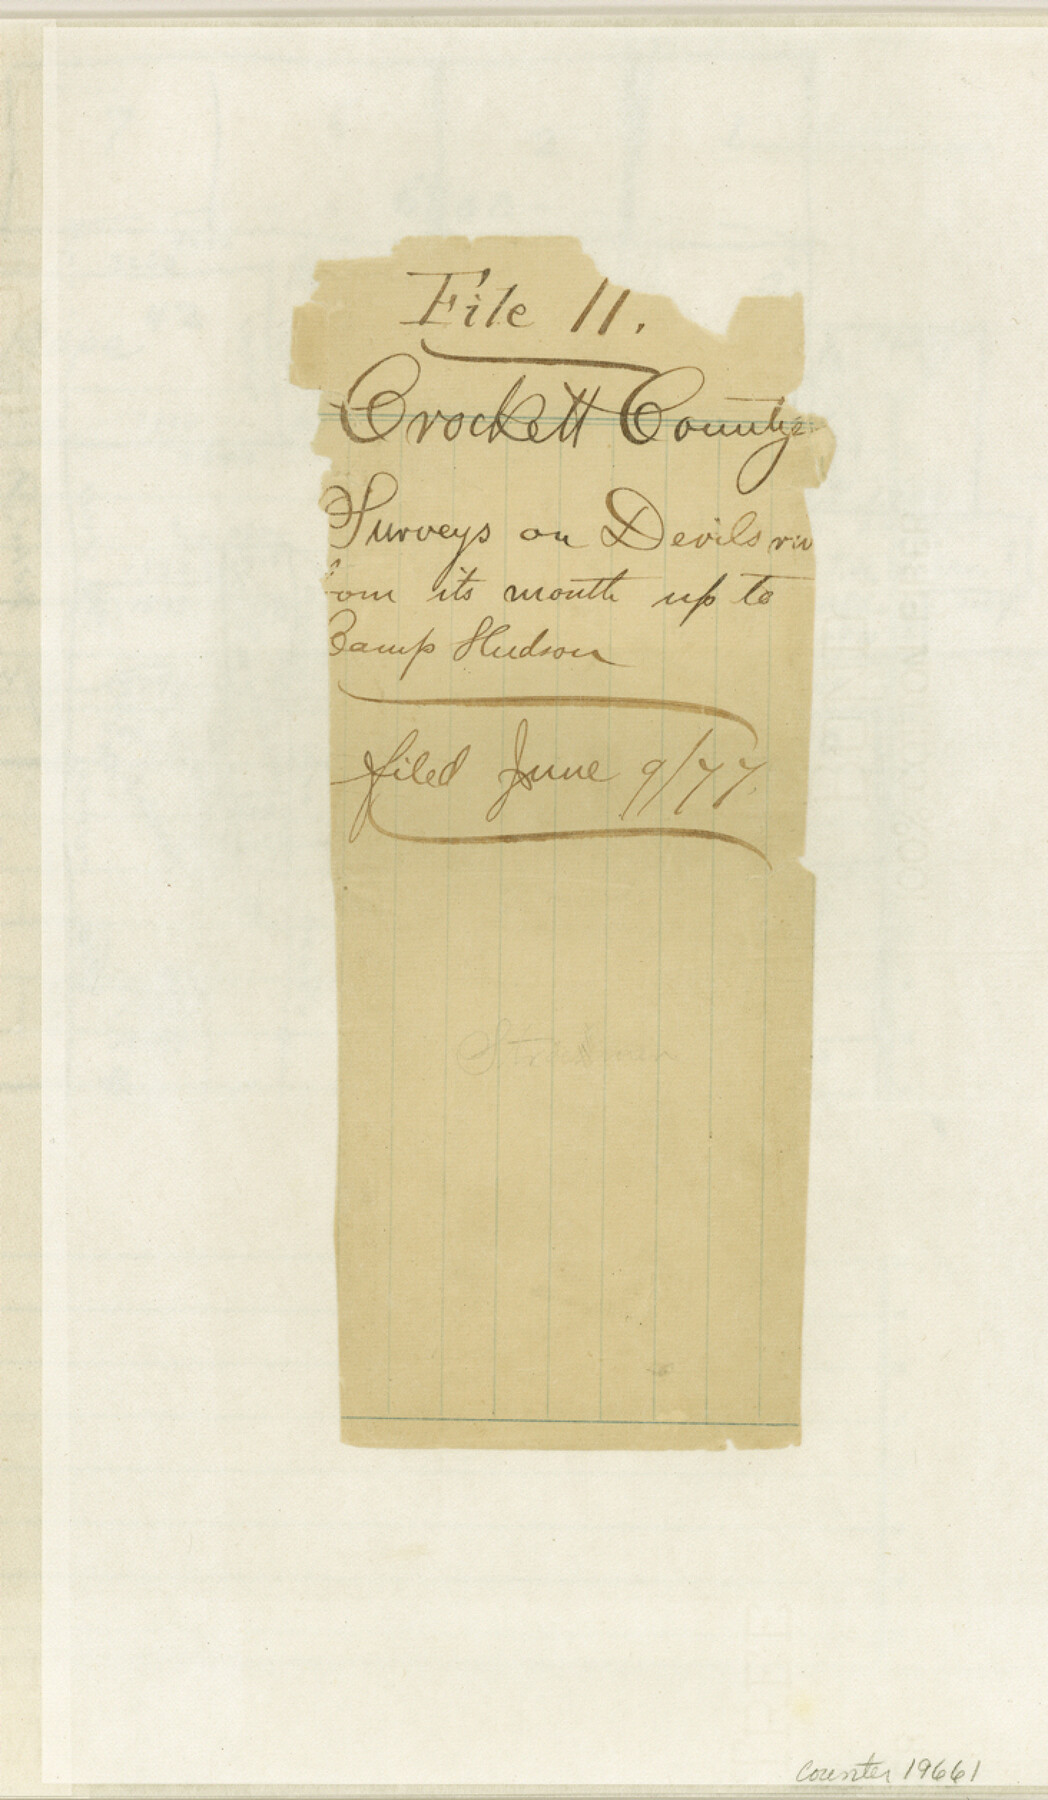 File 11.
Crockett County
Surveys on Devils riv
om its mouth up to
Camp Hudson
filed June 9/77.
counter 19661